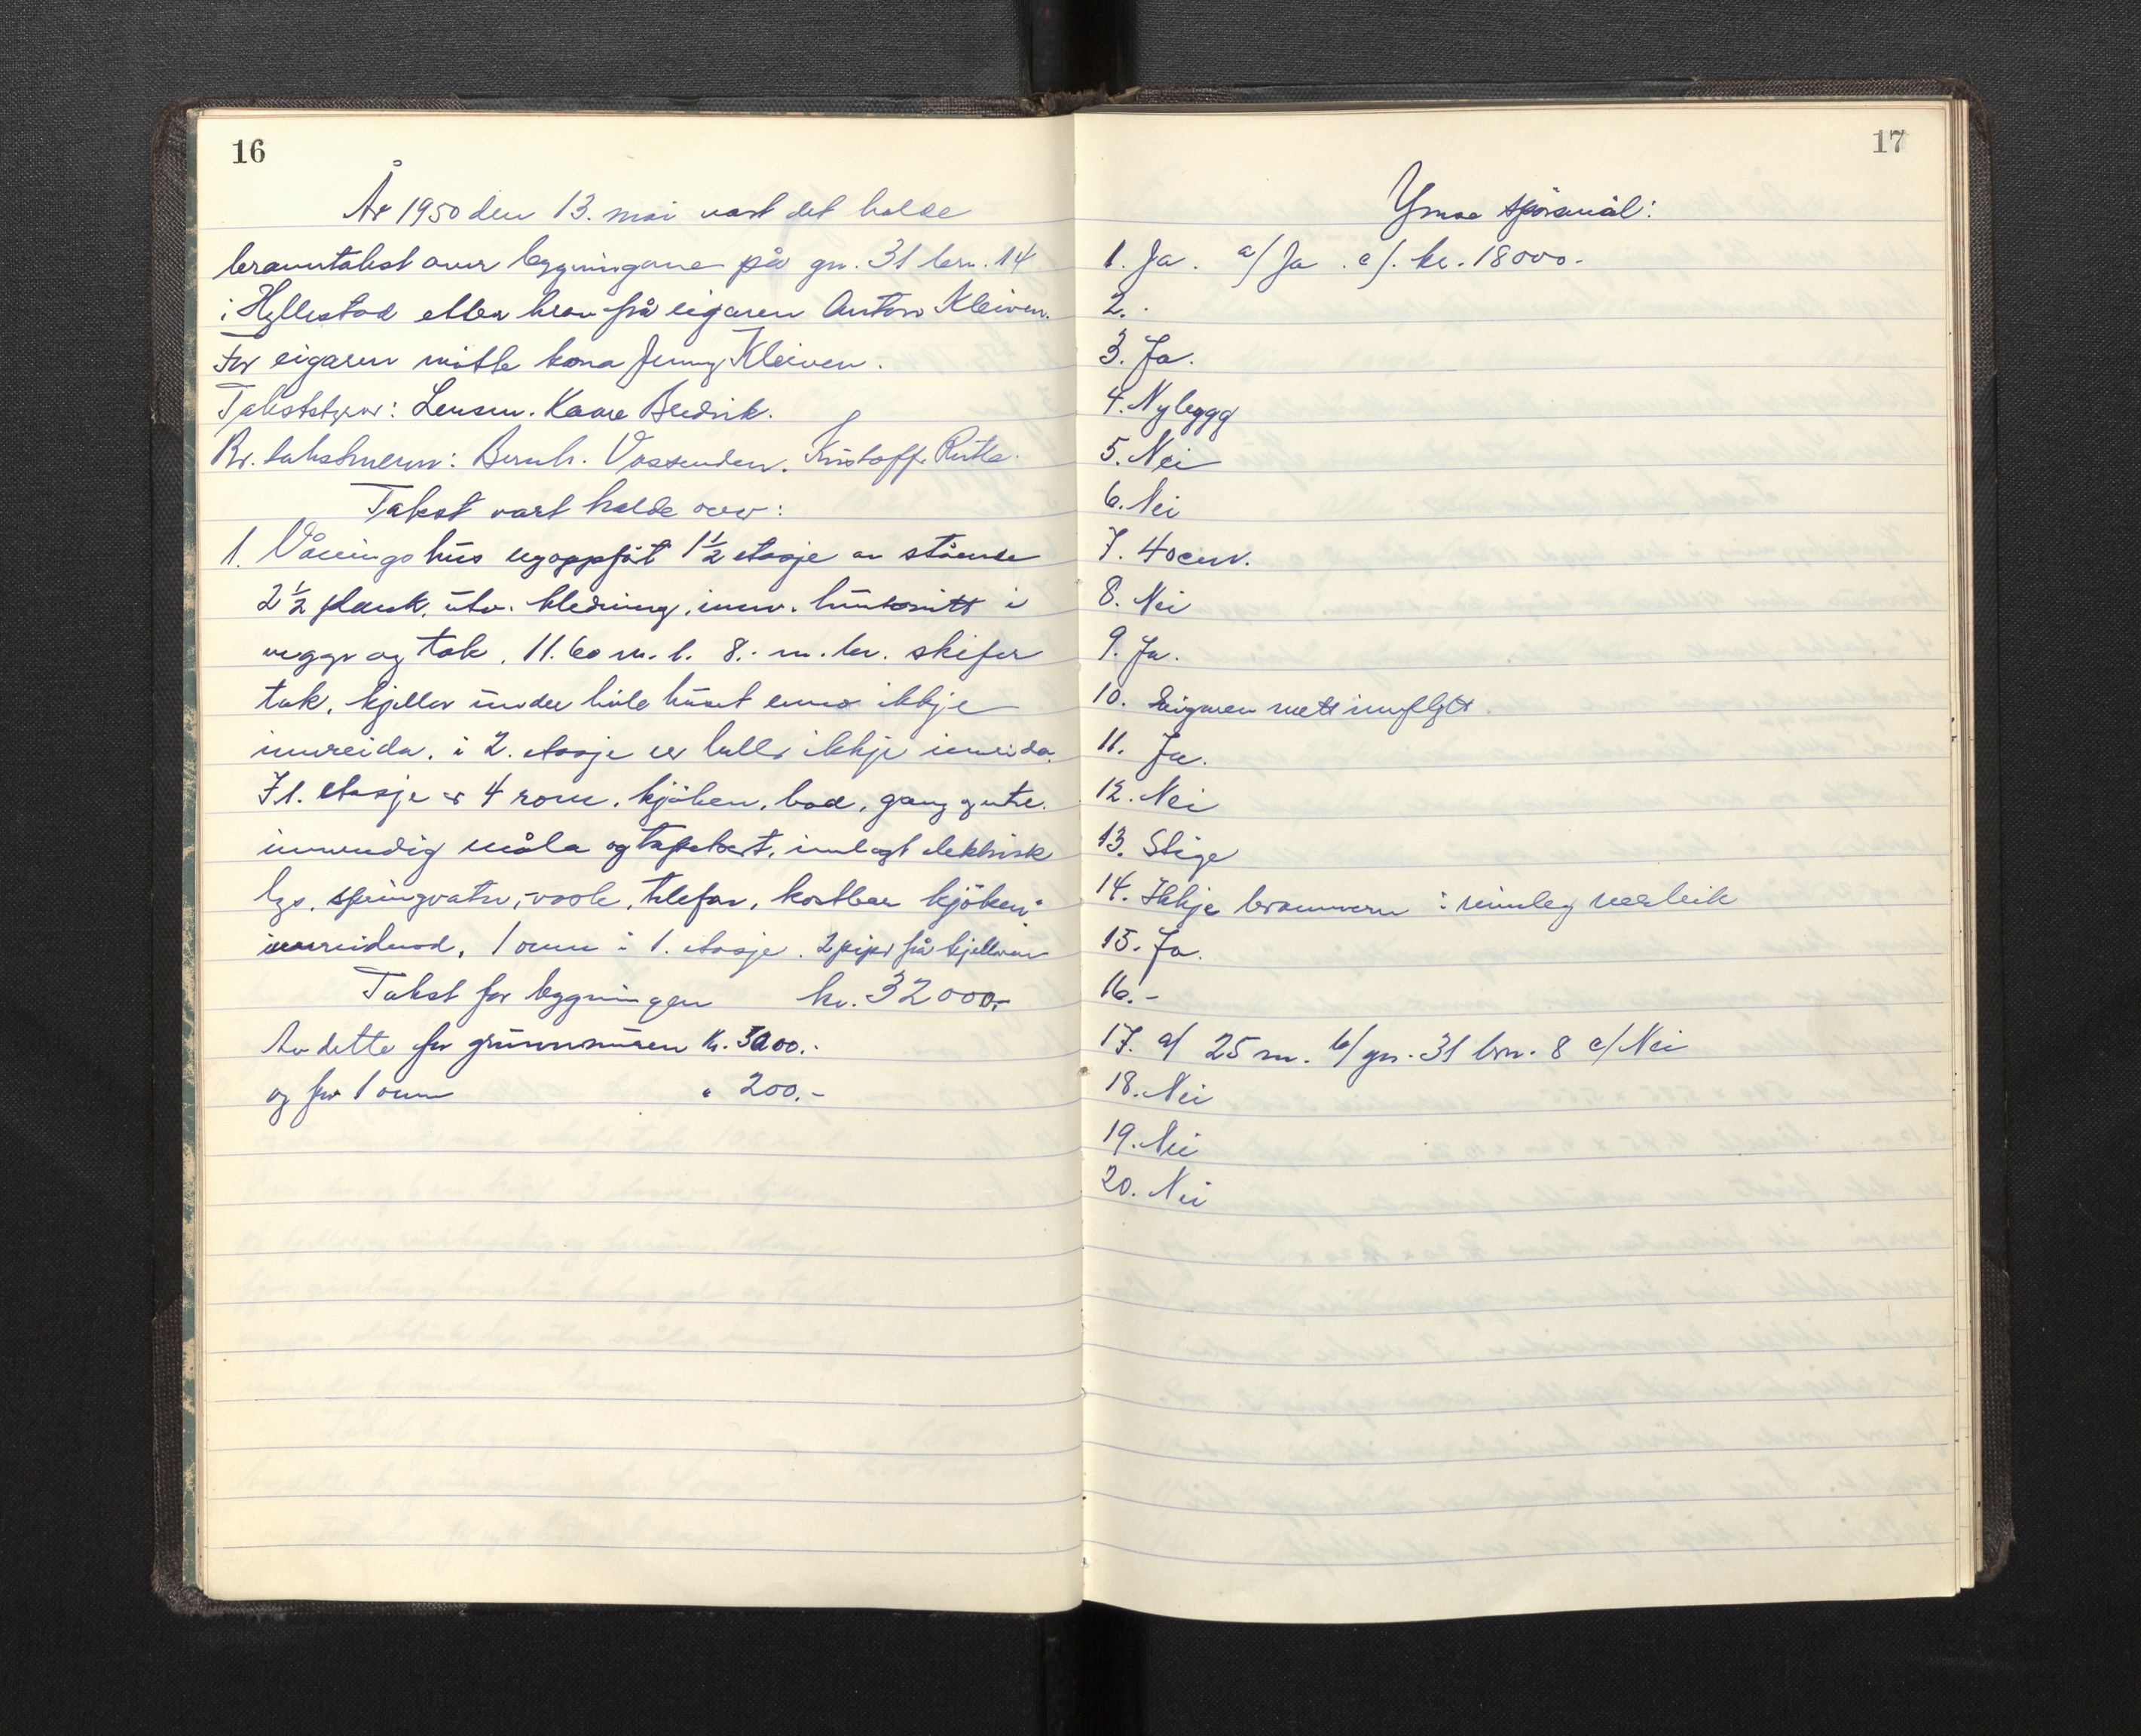 16
År 1950 den 13. mai vart det halde
branntakst over bygningane på gn. 31 brn. 14
i Hyllestad etter krav frå eigaren Anton Kleiven.
For eigaren møtte kona Jenny Kleiven.
Takststyrar: Lensm. Kaare Bredvik.
Br. takstmenn: Bernh. Vassenden. Kristoffer Risnes.
Takst vart halde over:
1. Våningshus nyoppført 1½ etasje av stående
2½ plank, utv. kledning, innv. huntonitt i
vegger og tak. 11.60 m. l. 8.- m. br. skifer
tak, kjeller under heile huset enno ikkje
innreida. i 2. etasje er heller ikkje innreida.
I 1. etasje er 4 rom, kjöken, bad, gang og entre.
innvendig måla og tapetsert, innlagt elektrisk
lys, springvatn, vask, telefon, kostbar kjöken-
innreidnad, 1 omn i 1. etasje. 2 piper frå kjellaren
Takst for bygningen kr. 32000.-
Av dette for grunnmuren kr. 3000.-
og for 1 omn " 200.-
17
Ymse spörsmål:
1. Ja. a/ Ja. c/. kr. 18000.-
2. -
3. Ja.
4. Nybygg
5. Nei
6. Nei
7. 40 cm.
8. Nei
9. Ja.
10. Eigaren nett innflytt.
11. Ja.
12. Nei
13. Stige
14. Ikkje brannvern i rimeleg nærleik
15. Ja.
16. -
17. a/ 25 m. b/ gn. 31 brn. 8 c/ Nei
18. Nei
19. Nei
20. Nei